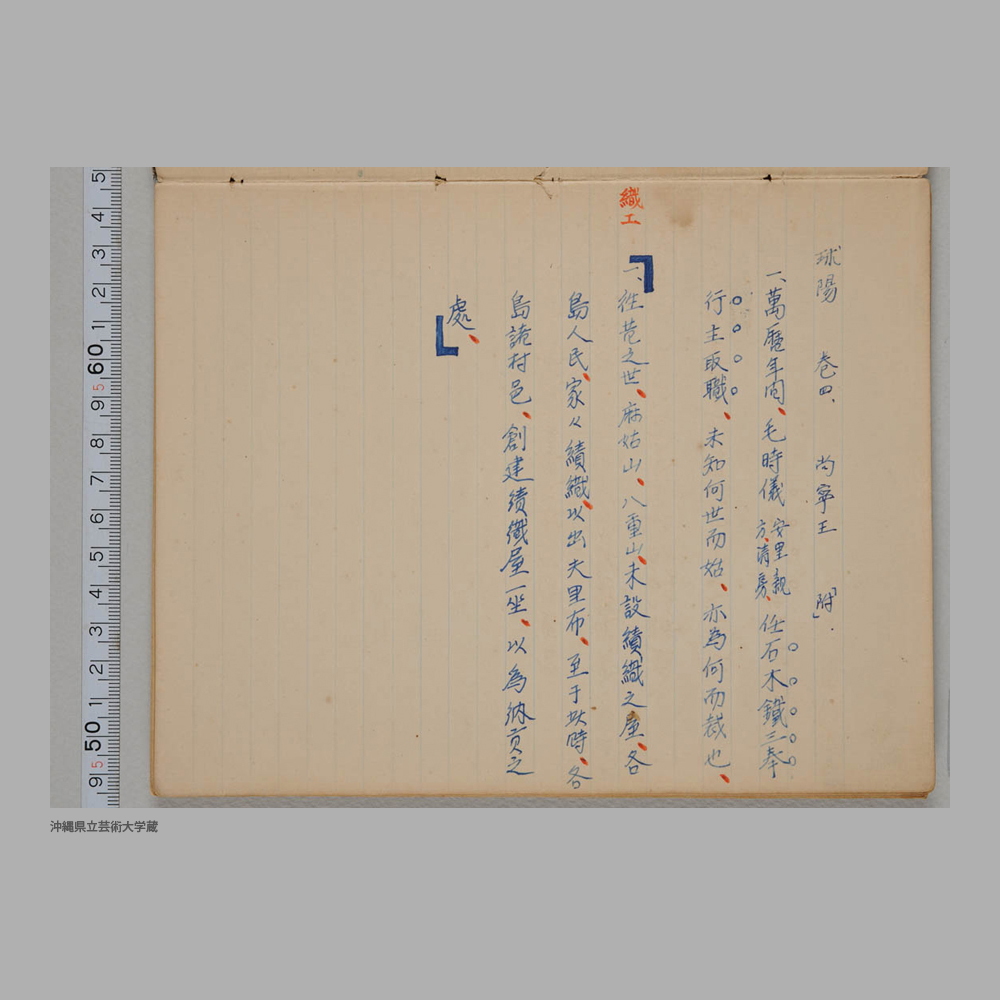 球陽 卷四、 尚寧王 「附」.
一、萬曆年間、毛時儀 安里親方、清房、任石木鐵三奉
行主取職、未知何世而始、亦為何而裁也、
織工
一、往昔之世、麻姑山、八重山、未設績織之屋、各
島人民、家々績織、以出夫里布、至于此時、各
島諸村邑、創建績織屋一坐、以為納貢之
處、
5 4 3 2 1 60 9 8 7 6 5 4 3 2 1 50 9
沖縄県立芸術大学蔵